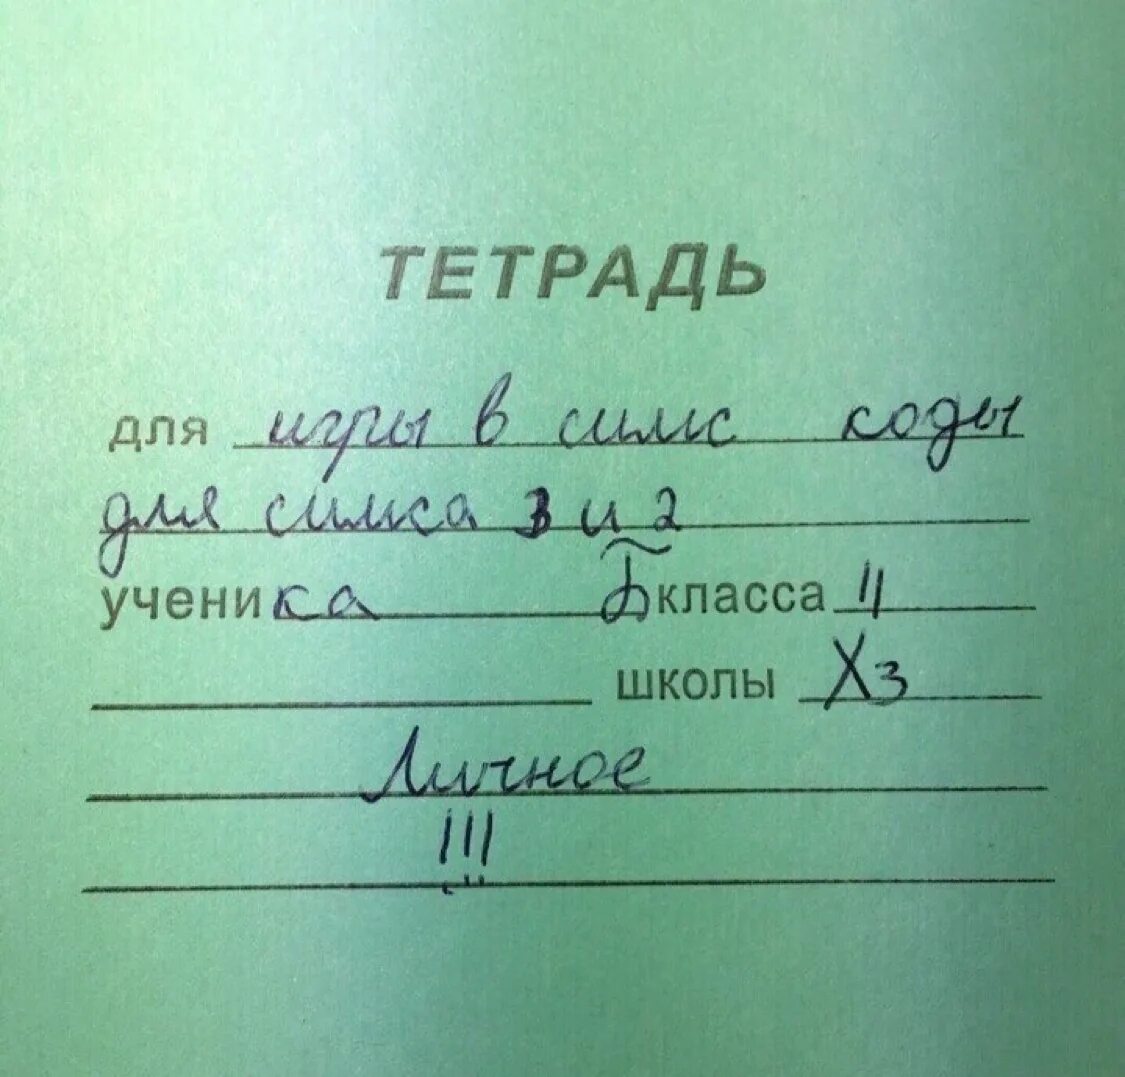 ТЕТРАДЬ
для игры в симс коды
для симса 3 и 2
ученика Б класса 11
школы Хз
Личное
!!!